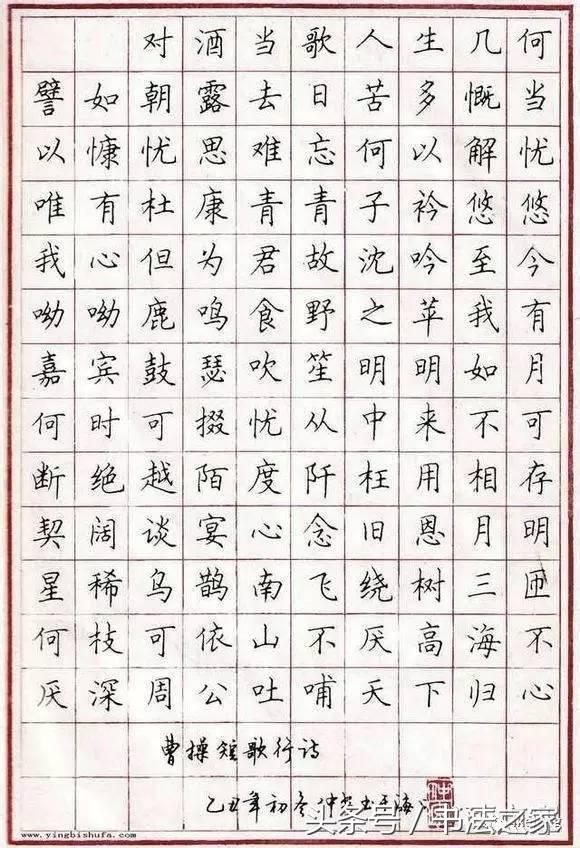 对酒当歌人生几何
譬如朝露去日苦多慨当
以慷忧思难忘何以解忧
唯有杜康青青子衿悠悠
我心但为君故沈吟至今
呦呦鹿鸣食野之苹我有
嘉宾鼓瑟吹笙明明如月
何时可掇忧从中来不可
断绝越陌度阡枉用相存
契阔谈宴心念旧恩月明
星稀乌鹊南飞绕树三匝
何枝可依山不厌高海不
厌深周公吐哺天下归心
曹操短歌行诗
乙丑年初冬仲
头条号/书法之家
www.yingbishufa.com